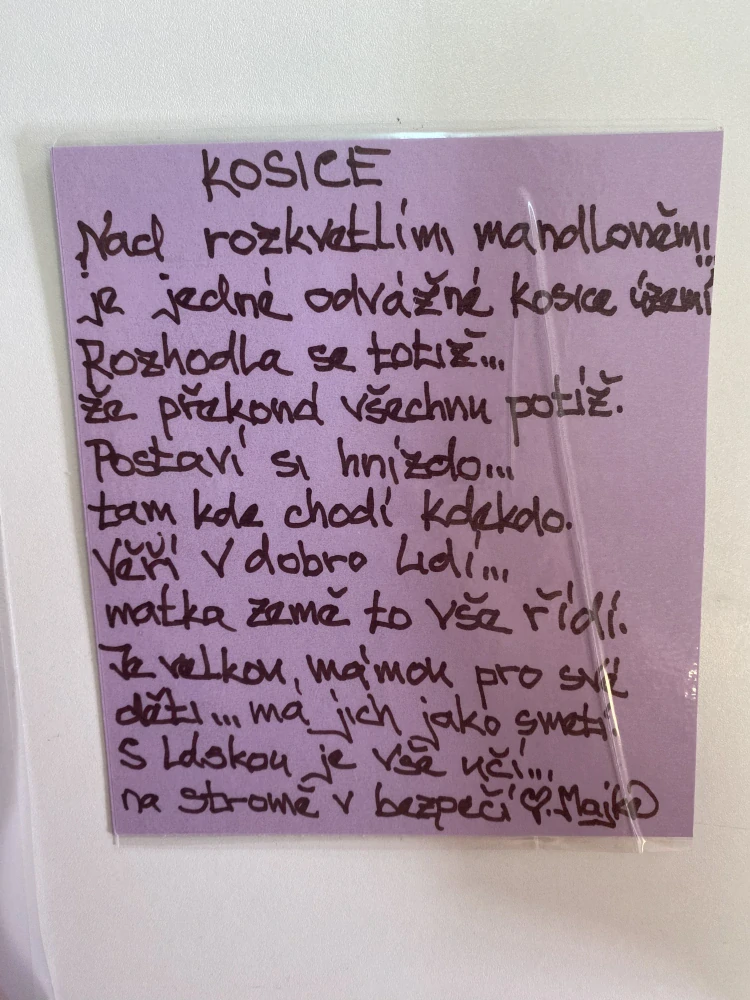 KOSICE
Nad rozkvetlími mandloněmi
je jedné odvážné kosice území
Rozhodla se totiž...
že překoná všechnu potíž.
Postaví si hnízdo...
tam kde chodí kdekdo.
Věří v dobro Lidí...
matka země to vše řídí.
Je velkou mámou pro své
děti... má jich jako smetí.
S Láskou je vše učí...
na stromě v bezpečí ♡. Majka